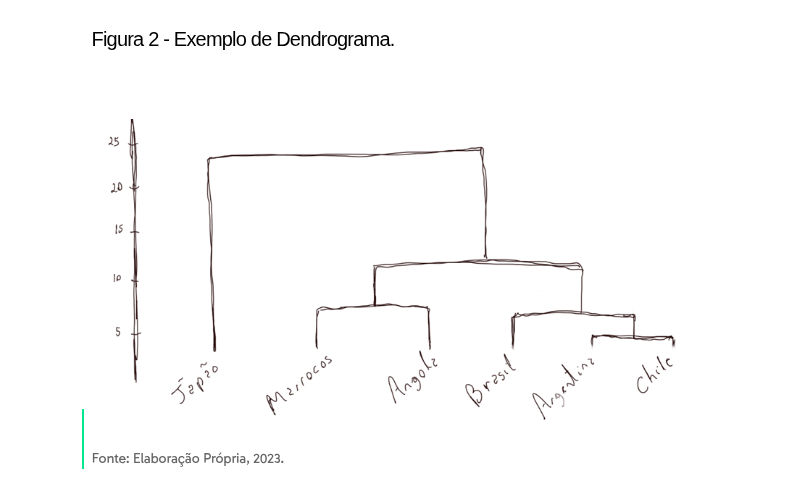 Figura 2 - Exemplo de Dendrograma.
25
20
15
10
5
Japão
Marrocos
Angola
Brasil
Argentina
Chile
Fonte: Elaboração Própria, 2023.